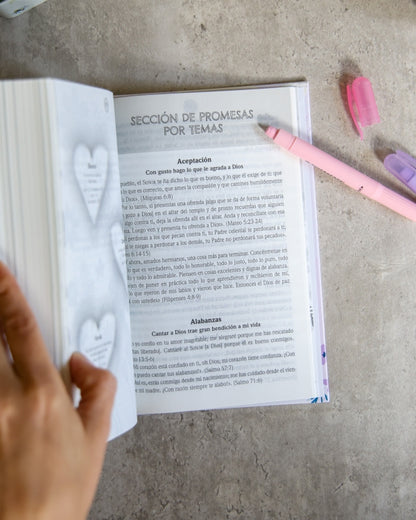 SECCIÓN DE PROMESAS
POR TEMAS
Aceptación
Con gusto hago lo que le agrada a Dios
pueblo, el Señor te ha dicho lo que es bueno, y lo que él exige de ti: que
es lo que es correcto, que ames la compasión y que camines humildemente
Dios». (Miqueas 6:8)
lo tanto, si presentas una ofrenda en el altar del templo y de pronto recuerdas que alguien
algo contra ti, deja la ofrenda allí en el altar. Anda y reconcíliate con esa
Luego ven y presenta tu ofrenda a Dios». (Mateo 5:23-24)
perdonas a los que pecan contra ti, tu Padre celestial te perdonará a ti;
te niegas a perdonar a los demás, tu Padre no perdonará tus pecados».
6:14-15)
ahora, amados hermanos, una cosa más para terminar. Concéntrense en
que es verdadero, todo lo honorable, todo lo justo, todo lo puro, todo
y todo lo admirable. Piensen en cosas excelentes y dignas de alabanza.
de poner en práctica todo lo que aprendieron y recibieron de mí,
que oyeron de mis labios y vieron que hice. Entonces el Dios de paz
con ustedes». (Filipenses 4:8-9)
Alabanzas
Cantar a Dios trae gran bendición a mi vida
yo confío en tu amor inagotable; me alegraré porque me has rescatado
liberado). Cantaré al Señor (a Dios) porque él es bueno conmigo.
13:5-6)
mi corazón está confiado en ti, oh Dios; mi corazón tiene confianza. ¡Con
puedo cantar tus alabanzas!». (Salmo 57:7)
sí, estás conmigo desde mi nacimiento; me has cuidado desde el vien-
mi madre. ¡Con razón siempre te alabo!». (Salmo 71:6)